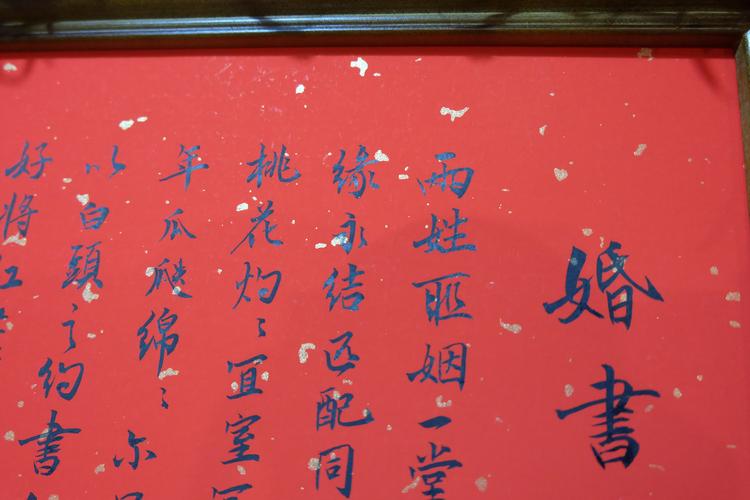 婚書
兩姓联姻一堂
緣永結匹配同
桃花灼〻宜室
年瓜瓞綿〻尔
以白頭之約書
好將紅